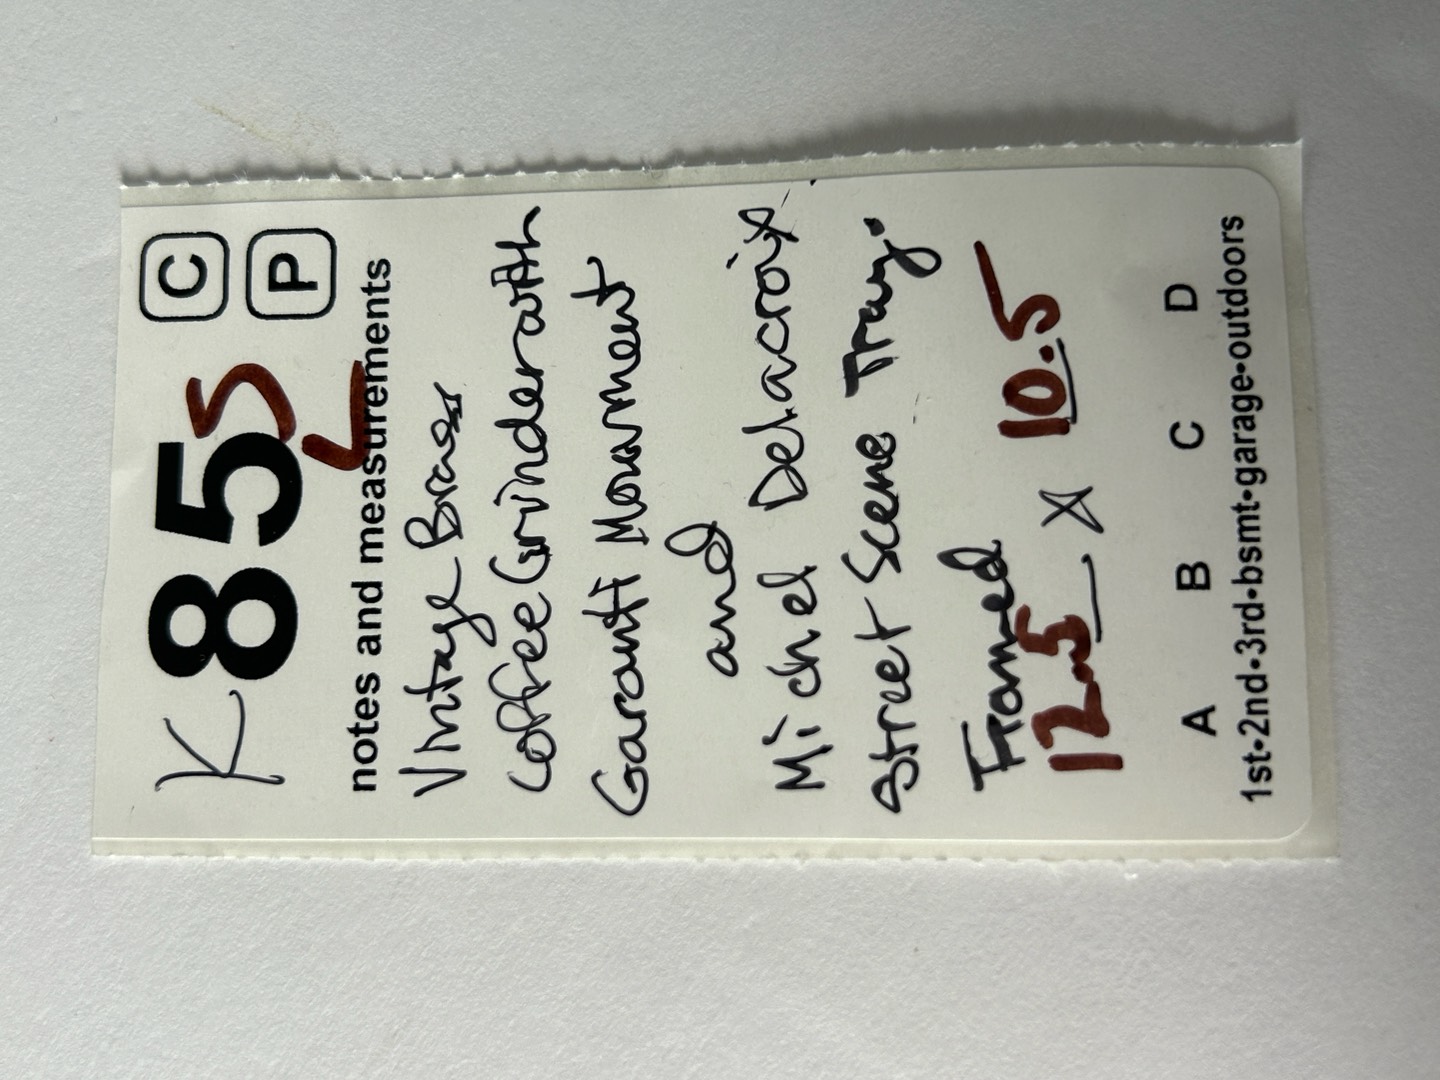 K 85 S C
L P
notes and measurements
Vintage Brass
Coffee Grinder with
Garanti Mouvment
and
Michel Delacroix
Street Scene Tray.
Framed
12.5 X 10.5
A B C D
1st•2nd•3rd•bsmt•garage•outdoors